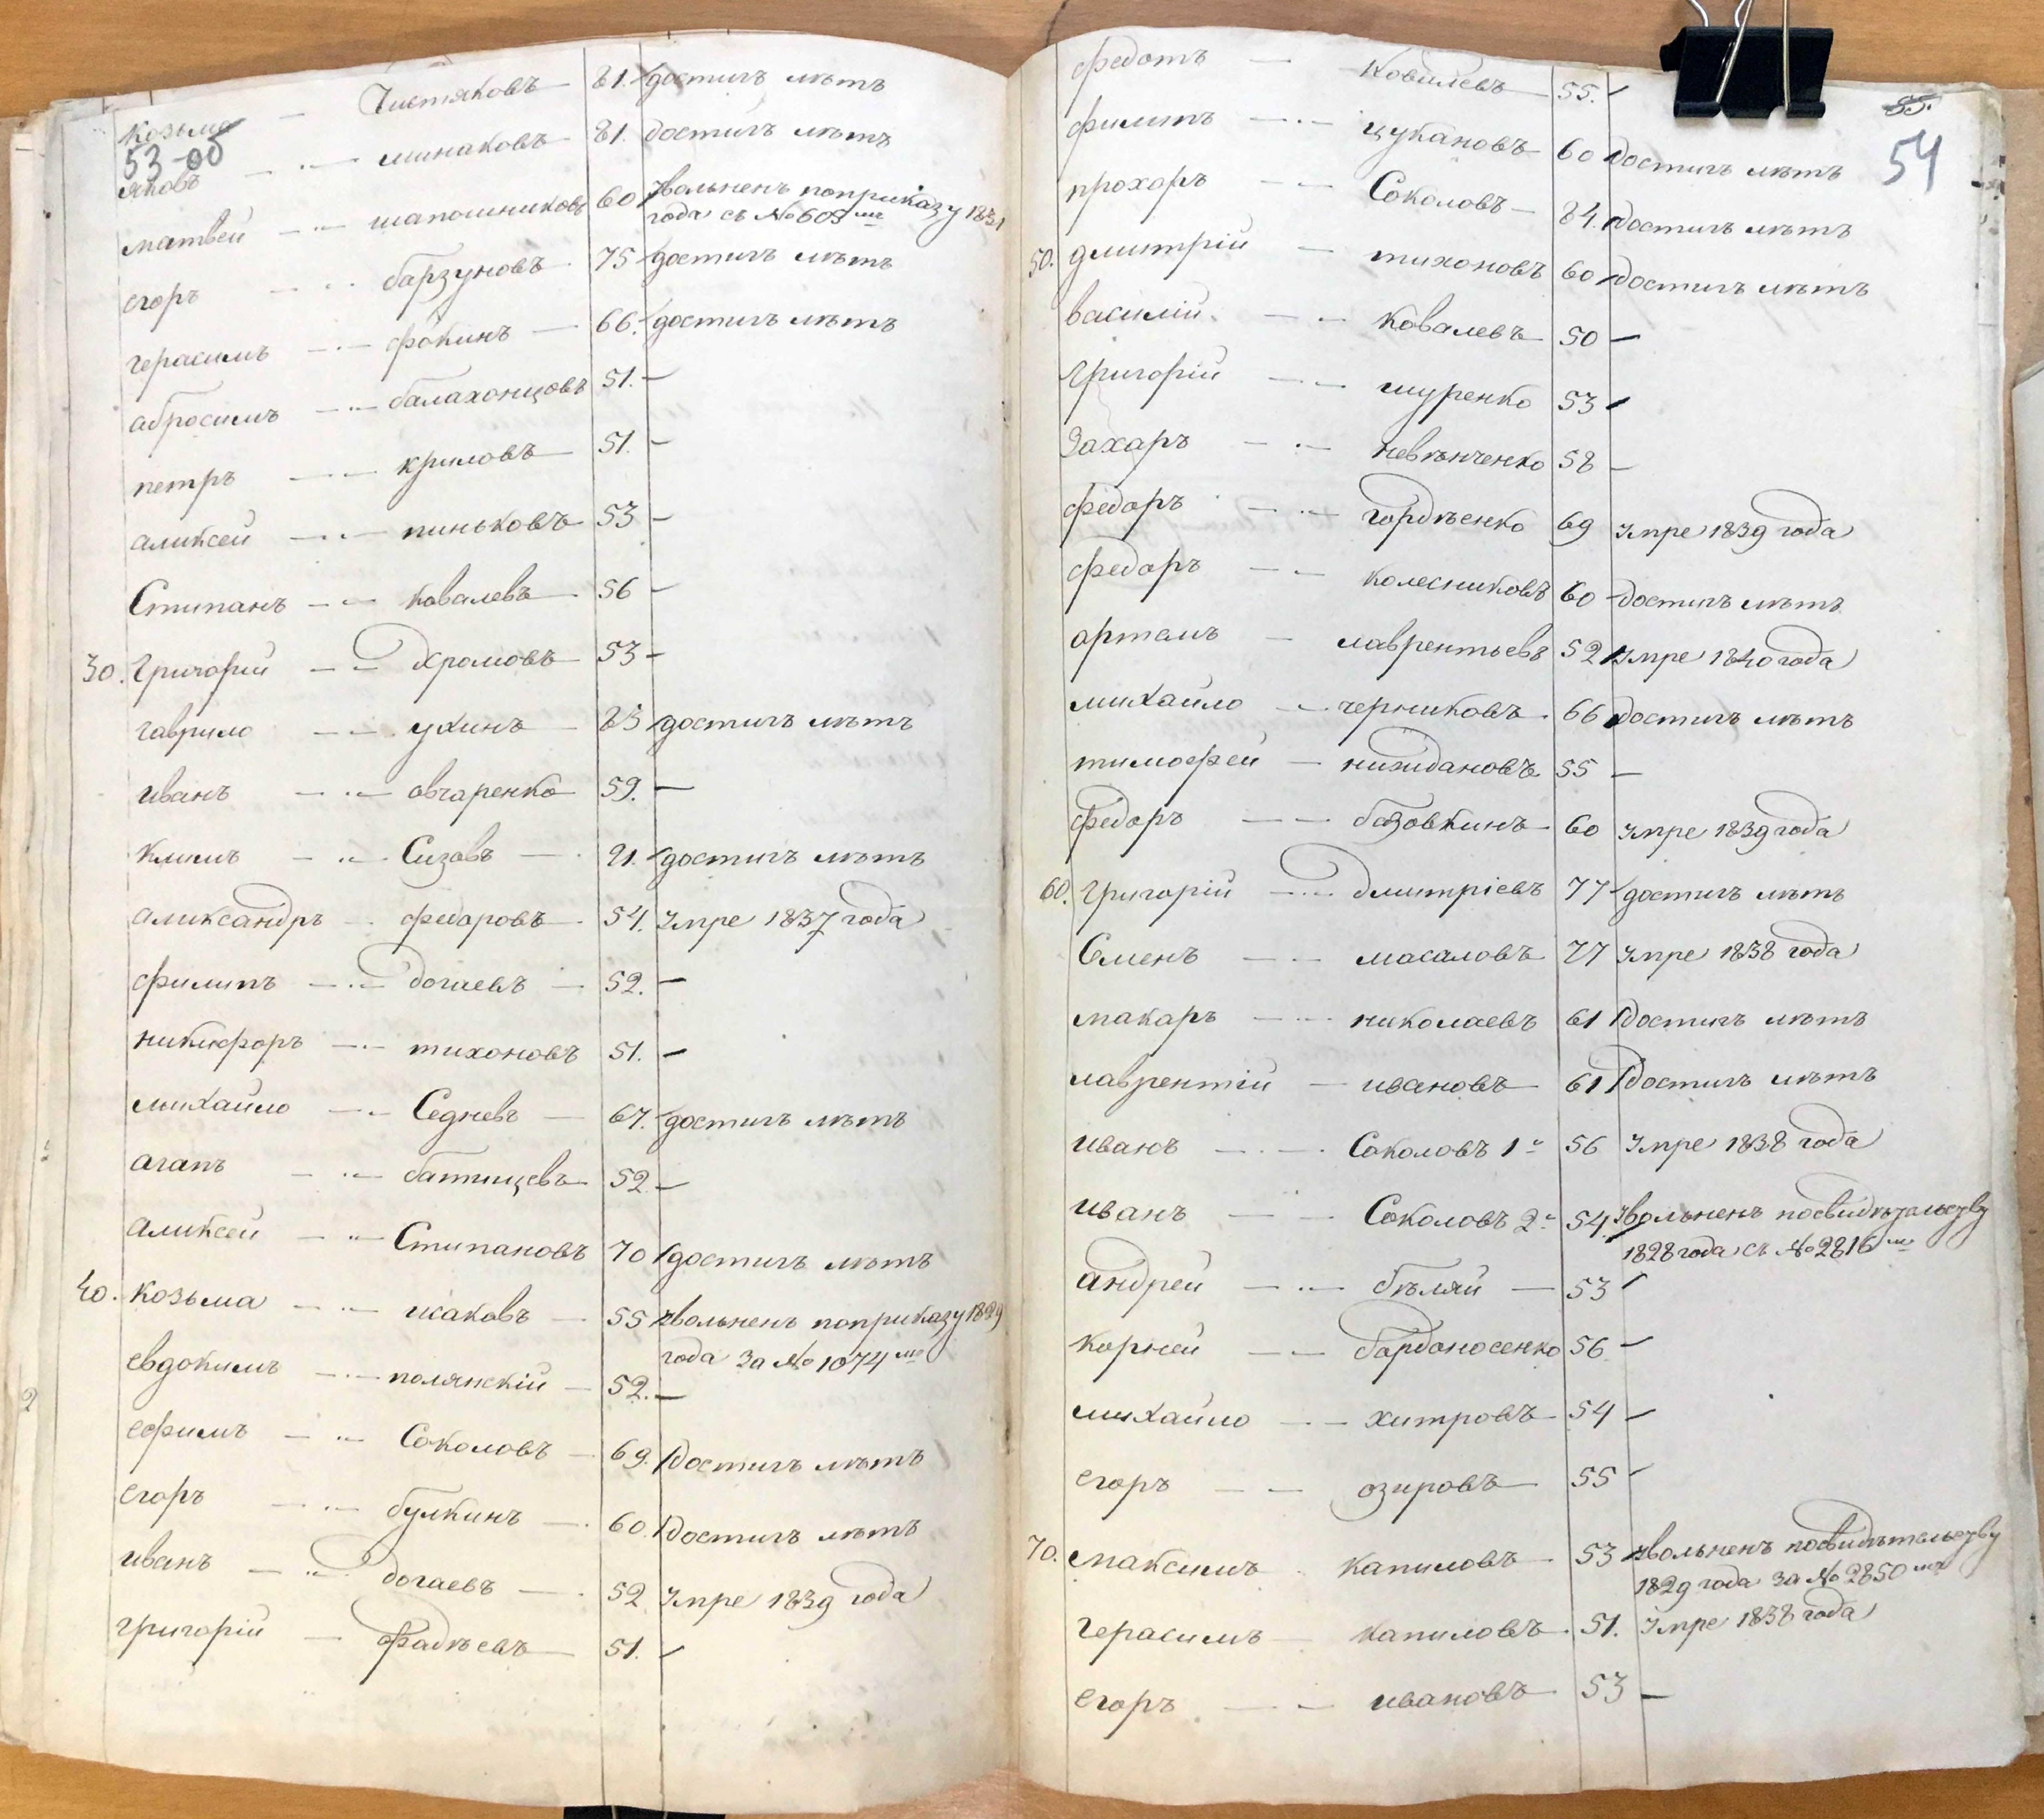 Козьма — Чистяковъ — 81. достигъ лѣтъ
53-об
яковъ — минаковъ — 81. достигъ лѣтъ
матвей — шапошниковъ 60 Увольненъ поприказу 1831
года съ № 605 мъ
егоръ — барзуновъ 75 достигъ лѣтъ
герасимъ — фокинъ — 66. достигъ лѣтъ
абросимъ — балахонцовъ 51. —
петръ — криловъ — 51. —
аликсей — пиньковъ — 53 —
Стипанъ — ковалевъ 56 —
30. Григорій — Хромовъ — 53 —
гаврило — ухинъ — 85 достигъ лѣтъ
иванъ — овчаренко 59. —
климъ — Сизовъ — 91. достигъ лѣтъ
аликсандръ — федоровъ 54. Умре 1837 года
филипъ — догаевъ — 52. —
никифоръ — тихоновъ 51. —
михайло — Седневъ — 67. достигъ лѣтъ
агапъ — батищевъ 52. —
аликсей — Стипановъ 70 достигъ лѣтъ
40. козьма — исаковъ — 55 Увольненъ поприказу 1829
года за № 1074 мъ
евдокимъ — полянскій — 52. —
ефимъ — Соколовъ — 69. достигъ лѣтъ
егоръ — булкинъ — 60. достигъ лѣтъ
иванъ — догаевъ — 52 Умре 1839 года
григорій — Фадѣевъ 51. —
федотъ — Ковилевъ — 55. —
55.
54
филипъ — цукановъ 60 достигъ лѣтъ
прохоръ — Соколовъ — 84. достигъ лѣтъ
50. дмитрій — тихоновъ 60 достигъ лѣтъ
василій — Ковалевъ 50 —
григорій — шуренко 53 —
Захаръ — невѣнченко 58 —
федоръ — гордѣенко 69 Умре 1839 года
федоръ — колесниковъ 60 достигъ лѣтъ
артемъ — лаврентьевъ 52 Умре 1840 года
михайло — черниковъ 66 достигъ лѣтъ
тимофей — нижидановъ 55 —
федоръ — базовкинъ 60 Умре 1839 года
60. григорій — дмитріевъ 77 достигъ лѣтъ
Семенъ — масаловъ 77 Умре 1838 года
макаръ — николаевъ 61 достигъ лѣтъ
лаврентій — ивановъ — 61 достигъ лѣтъ
иванъ — Соколовъ 1й 56 Умре 1838 года
иванъ — Соколовъ 2й 54. Увольненъ посвидѣтельству
1828 года съ № 2816 мъ
андрей — бѣляй — 53 —
корней — бардоносенко 56 —
михайло — хитровъ 54 —
егоръ — озировъ 55 —
70. максимъ капиловъ 53 Увольненъ посвидѣтельству
1829 года за № 2850 мъ
герасимъ — капиловъ 51. Умре 1838 года
егоръ — ивановъ 53 —